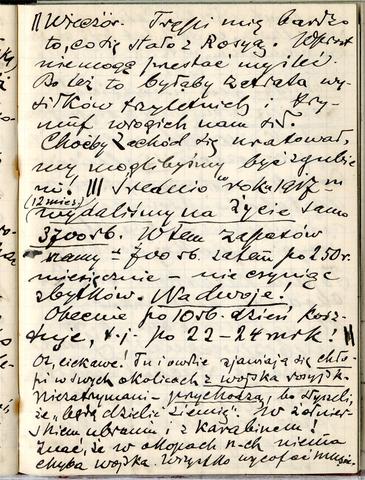 || Wieczór. Trapi mię bardzo
to, co się stało z Rosyą. Wprost
nie mogę przestać myśleć.
Bo też to byłaby zatrata wy-
siłków trzyletnich i try-
umf wrogich nam sił.
Choćby Zachód się uratował,
my moglibyśmy być zgubie-
ni! ||| Średnio w roku 1917-m
(12 mies.)
wydaliśmy na życie samo
3700 rb. W tem zapasów
mamy = 700 rb. zatem po 250 r.
miesięcznie – nie czyniąc
zbytków. Na dwoje!
Obecnie po 10 rb. dzień kosz-
tuje, t. j. po 22–24 mrk! ||
Ot, ciekawe! Tu i owdzie zjawiają się chło-
pi w swych okolicach z wojska rosyjsk.
Niezatrzymani – przychodzą, bo słyszeli,
że „będą dzielić ziemię". W żołnier-
skiem ubraniu i z karabinem!
Znać, że w okopach r-ch niema
chyba wojska. Wszystko wycofać